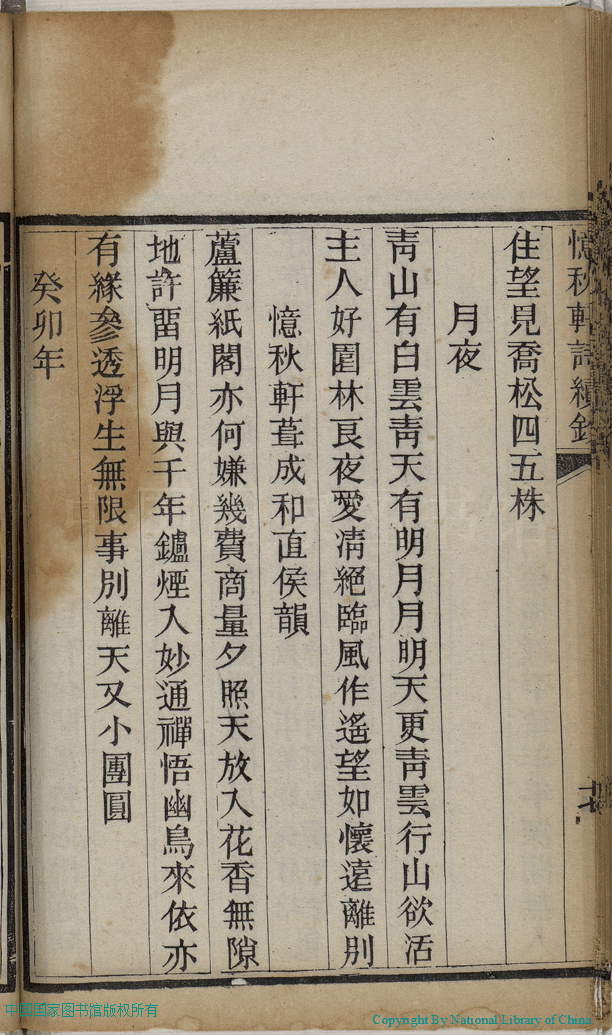 憶秋軒詩續鈔
住望見喬松四五株
月夜
靑山有白雲靑天有明月月明天更靑雲行山欲活
主人好園林良夜愛淸絕臨風作遙望如懷遠離別
憶秋軒葺成和直侯韻
蘆簾紙閣亦何嫌幾費商量夕照天放入花香無隙
地許畱明月與千年鑪煙入妙通禪悟幽鳥來依亦
有緣參透浮生無限事別離天又小團圓
癸卯年
中国国家图书馆版权所有
Copyright By National Library of China